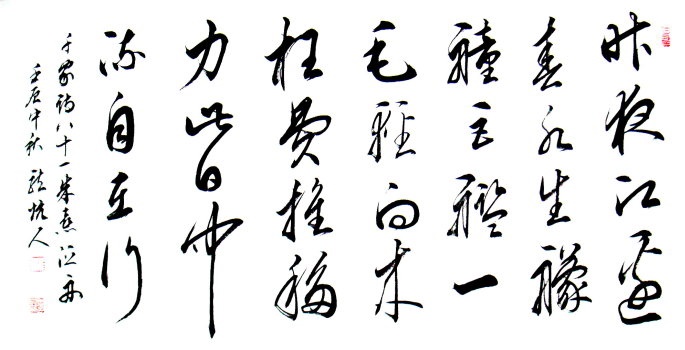 昨夜江邊
春水生艨
艟巨艦一
毛輕向来
枉費推移
力此日中
流自在行
千家詩八十一朱熹泛舟
壬辰中秋